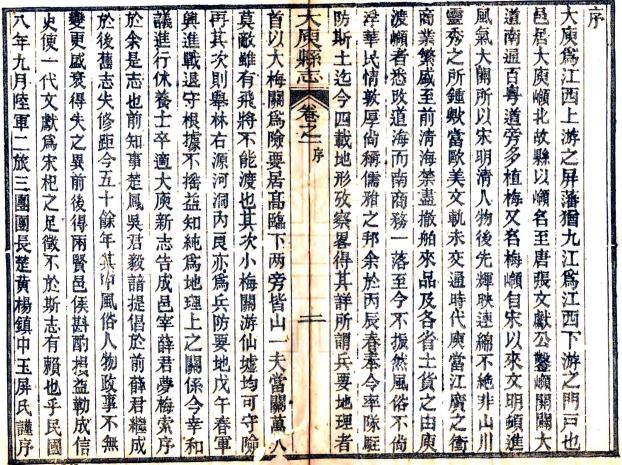 序
大庾爲江西上游之屏藩猶九江爲江西下游之門戶也
邑居大庾嶺北故縣以嶺名至唐張文獻公鑿嶺開關大
道南通百粵道旁多植梅又名梅嶺自宋以來文明頓進
風氣大闢所以宋明清人物後先輝映連綿不絕非山川
靈秀之所鍾歟當歐美文軌未交通時代庾當江廣之衝
商業繁盛至前清海禁盡撤舶來品及各省土貨之由庾
渡嶺者悉改道海而南商務一落至今不振然風俗不尚
浮華民情敦厚尚稱儒雅之邦余於丙辰春奉令率隊駐
防斯土迄今四載地形攷察畧得其詳所謂兵要地理者
大庾縣志 卷之一 序 二
首以大梅關爲險要居高臨下兩旁皆山一夫當關萬八
莫敵雖有飛將不能渡也其次小梅關游仙墟均可守險
再其次則舉林右源河洞內良亦爲兵防要地戊午春軍
興進戰退守根據不搖益知純爲地理上之關係今幸和
議進行休養士卒適大庾新志告成邑宰薛君夢梅索序
於余是志也前知事楚鳳吳君毅諳提倡於前薛君繼成
於後舊志失修距今五十餘年其間風俗人物政事不無
變更盛衰得失之異前後得兩賢邑侯斟酌損益勒成信
史使一代文獻爲宋杞之足徵不於斯志有賴也乎民國
八年九月陸軍二旅三團團長楚黃楊鎮中玉屏氏謹序